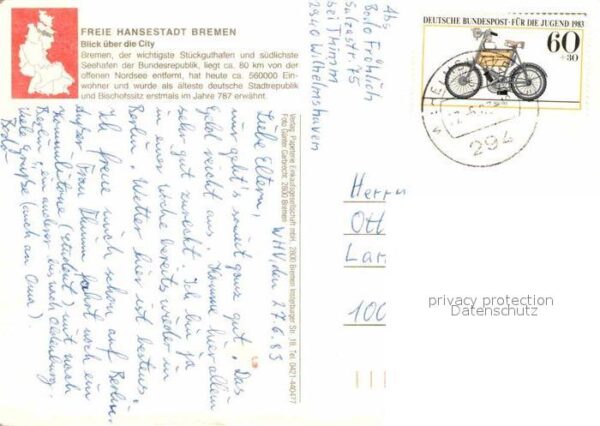 FREIE HANSESTADT BREMEN
Blick über die City
Bremen, der wichtigste Stückguthafen und südlichste
Seehafen der Bundesrepublik, liegt ca. 60 km von der
offenen Nordsee entfernt, hat heute ca. 560000 Ein-
wohner und wurde als älteste deutsche Stadtrepublik
und Bischofssitz erstmals im Jahre 787 erwähnt.
WHV, den 27.6.83
Liebe Eltern,
mir geht's soweit ganz gut. Das
Geld reicht aus. Komme hier allem
sehr gut zurecht. Ich bin ja
in einer Woche bereits wieder in
Berlin. Wetter hier ist bestens.
Ich freue mich schon auf Berlin.
Außer Frau Thimm fährt noch ein
Kommilitone (Student) mit nach
Berlin, ein anderer bis nach Oldenburg.
Viele Grüße (auch an Oma).
Bodo
Verlag: Papeterie Einkaufsgesellschaft mbH, 2800 Bremen Insterburger Str. 18, Tel. 0421-440477
Foto Günter Garbrecht, 2820 Bremen
Abs
Bodo Fröhlich
Sulzastr. 75
bei Thimm
2940 Wilhelmshaven
DEUTSCHE BUNDESPOST · FÜR DIE JUGEND 1983
60
+30
294
Herrn
Ott
Lan
100
privacy protection
Datenschutz